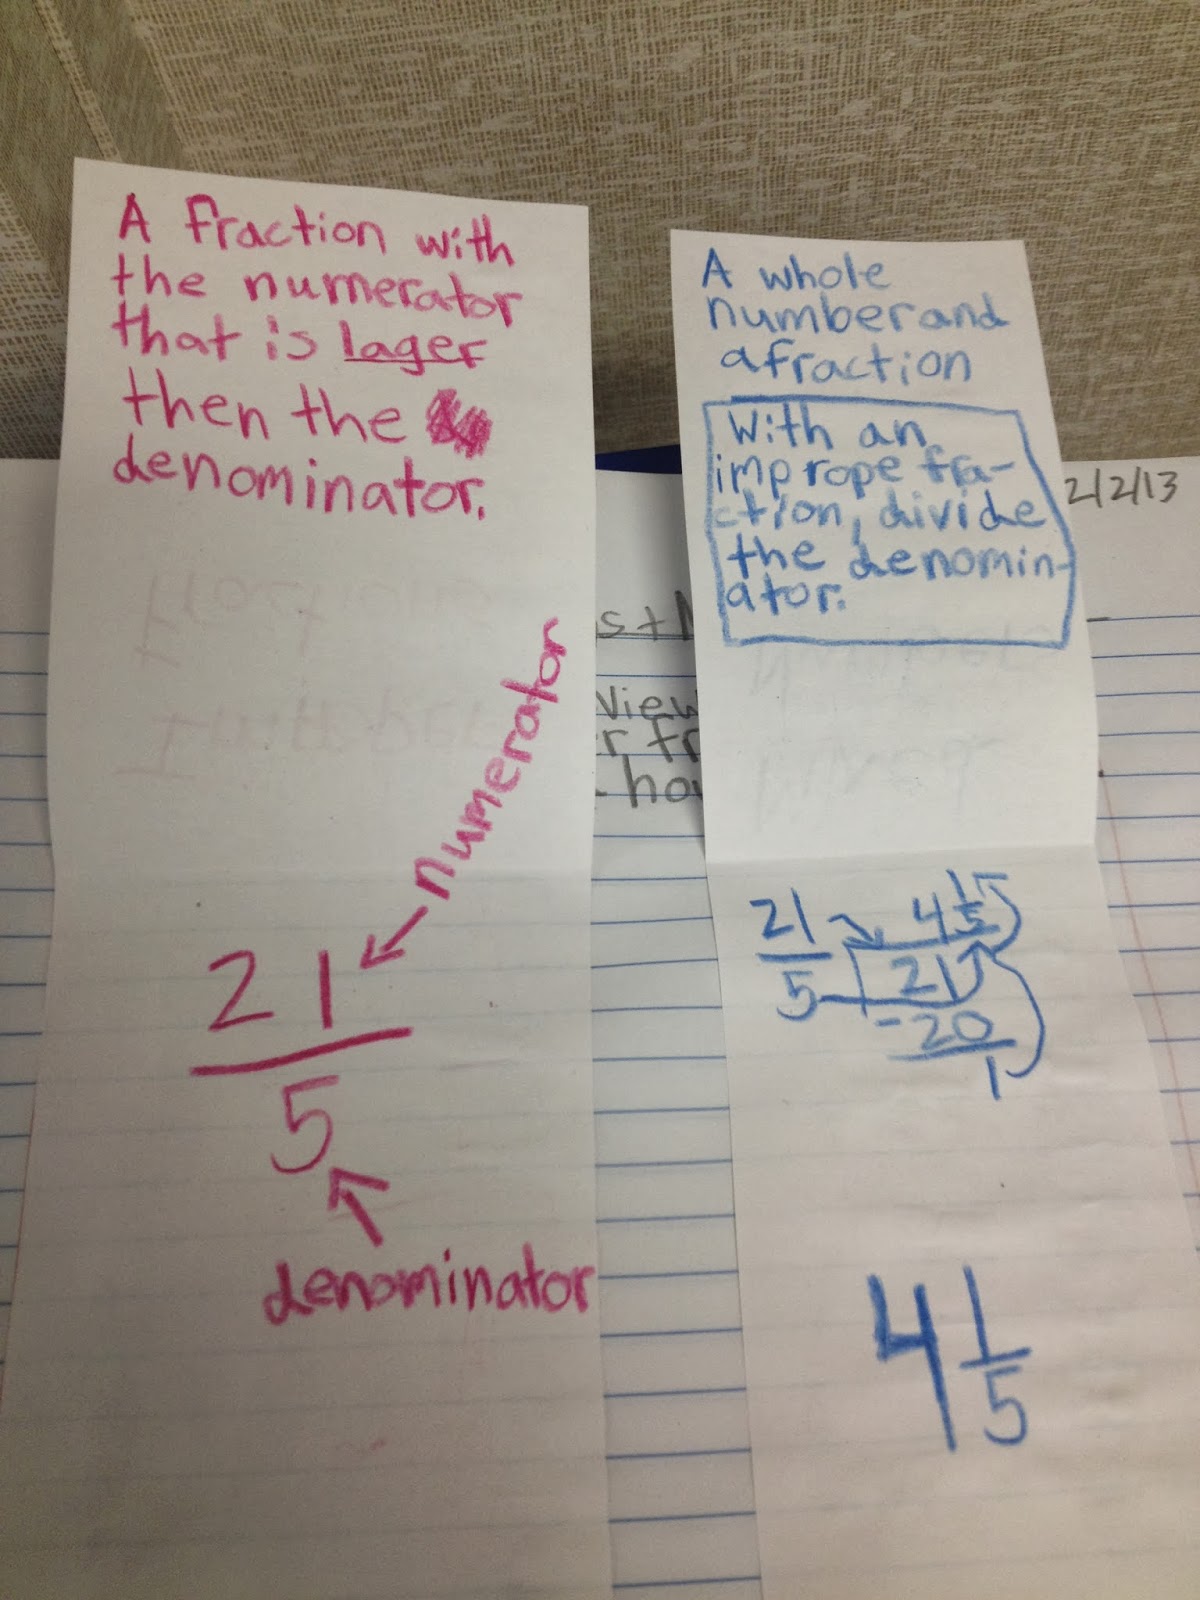 A fraction with
the numerator
that is lager
then the
denominator.
numerator
21
5
denominator
A whole
number and
a fraction
With an
imprope fra-
ction, divide
the denomin-
ator.
21
5
4 1/5
21
-20
1
4 1/5
2/2/13
view
how